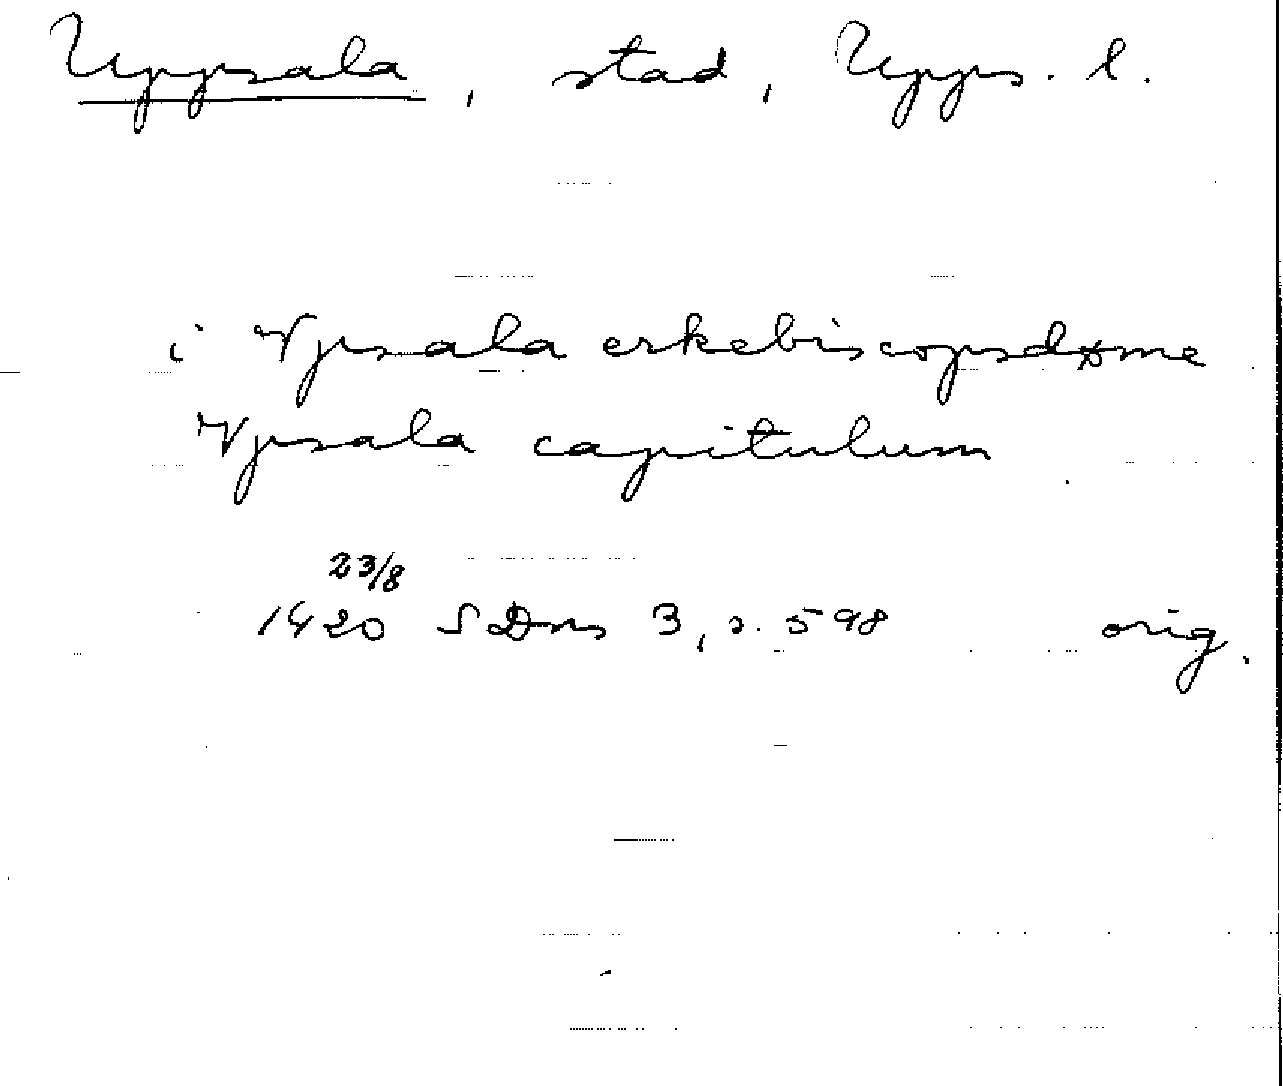 Uppsala, stad, Upps. l.
i Vpsala erkebiscopsdøme
Vpsala capitulum
23/8
1420 SDns 3, s. 598 orig.